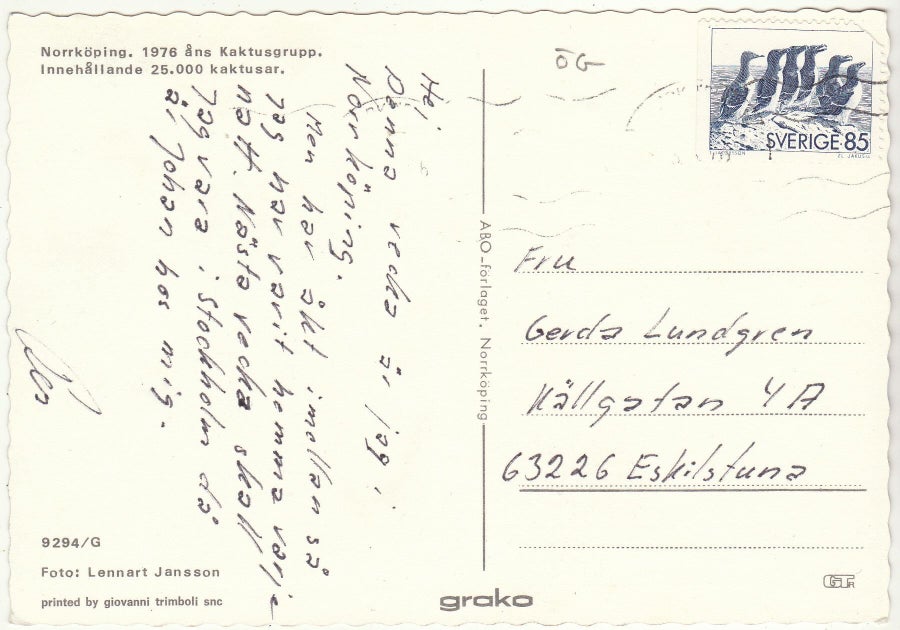 Norrköping. 1976 åns Kaktusgrupp.
Innehållande 25.000 kaktusar.
Hej
Denna vecka är jag i
Norrköping.
men har åkt imellan så
jag har varit hemma varje
natt. Nästa vecka skall
jag vara i Stockholm då
är Johan hos mig.
9294/G
Foto: Lennart Jansson
printed by giovanni trimboli snc
ABO-förlaget, Norrköping
grako
ÖG
SVERIGE 85
Fru
Gerda Lundgren
Källgatan 4A
63226 Eskilstuna